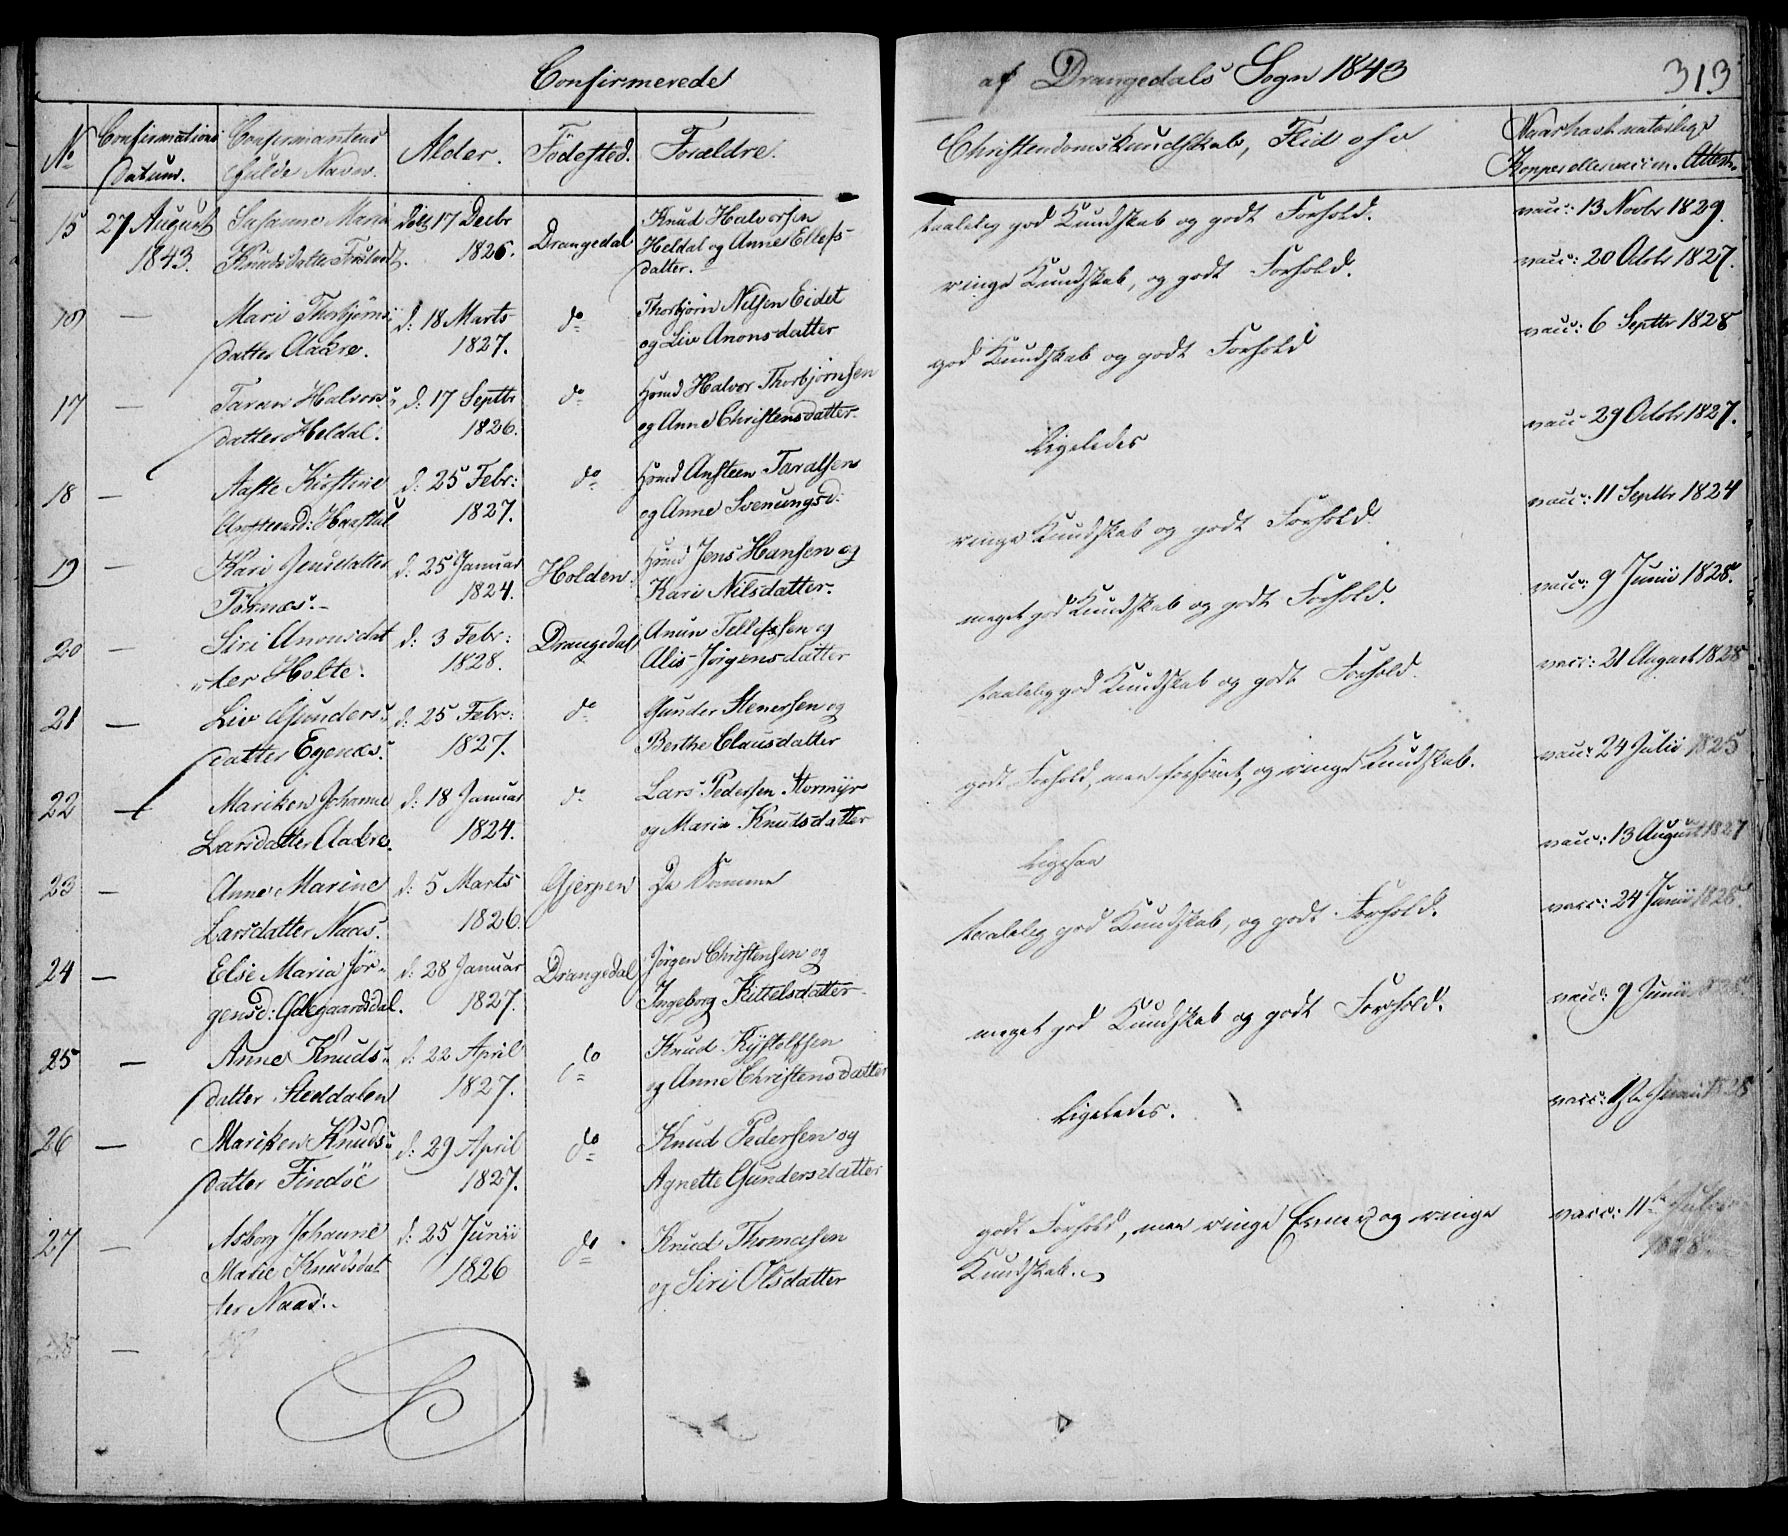 Confirmerede
af Drangedals Sogn 1843
313
No
Confirmations
Datum.
Confirmantens
fulde Navn.
Alder.
Födested.
Forældre.
Christendomskundskab, Flid osv
Naar havt naturlige
Kopper eller vaccin. Attest
15 27 August 1843. Susanne Maria
Knudsdatter
17 Decbr 1826.
Drangedal
Knud Halvorsen
Heldal og Anne Ellefs-
datter.
taalelig god Kundskab og godt Forhold.
vacc: 13 Novbr 1829.
16 — Mari Thorbjörns-
datter Aabre.
d: 18 Marts
1827.
do
Thorbjörn Nilsen Eidet
og Liv Anonsdatter
ringe Kundskab, og godt Forhold.
vacc: 20 Octbr 1827.
17 — Taran Halvors-
datter Heldal.
d: 17 Septbr
1826.
do
Hmd Halvor Thorbjörnsen
og Anne Christensdatter.
god Kundskab og godt Forhold
vacc: 6 Septbr 1828
18 — Aaste Kirstine
d: 25 Febr:
1827.
do
Hmd Ansteen Taralsen
og Anne Svenungsd:
Ligeledes
vacc 29 Octbr 1827.
19 — Kari Jensdatter
Törnes.
d: 25 Januar
1824.
Holden.
Hmd Jens Hansen og
Kari Nilsdatter.
ringe Kundskab og godt Forhold.
vacc: 11 Septbr 1824
20 — Siri Anonsdat
ter Holte.
d: 3 Febr:
1828.
Drangedal
Anun Tellefsen og
Alis Jörgensdatter
meget god Kundskab og godt Forhold.
vacc: 9 Junii 1828.
21 — Liv Gunders-
datter Egenæs.
d: 25 Febr:
1827.
do
Gunder Stenersen og
Berthe Clausdatter
taalelig god Kundskab og godt Forhold.
vacc: 21 August 1828
22 — Mariken Johanne
Larsdatter Aabre.
d: 18 Januar
1824.
do
Lars Pedersen Stormyr
og Maria Knutsdatter
godt Forhold, men forsömt, og ringe Kundskab.
vacc: 24 Julii 1825
23 — Anne Marine
Larsdatter Naas.
d: 5 Marts
1826.
Gjerpen
De Samme
Ligesaa
vacc: 13 August 1827
24 — Else Maria Jör-
gensd: Ödegaardsdal.
d: 28 Januar
1827.
Drangedal
Jörgen Christensen og
Ingeborg Kittelsdatter
taalelig god Kundskab, og godt Forhold.
vacc: 24 Junii 1828.
25 — Anne Knuds-
datter Steddalen
d: 22 April
1827.
do
Knud Kjstolfsen
og Anne Christensdatter
meget god Kundskab og godt Forhold.
vacc: 9 Junii
26 — Mariken Knuds-
datter Findöe
d: 29 April
1827.
do
Knud Pedersen og
Agnette Gundersdatter
Ligeledes.
vacc: 1828
27 — Asborg Johanne
Marie Knudsdat
ter Naas.
d: 25 Junii
1826
do
Knud Thomasen
og Siri Olsdatter
godt Forhold, men ringe Evner og ringe
Kundskab.
vacc: 11te Julii
1828
28 —